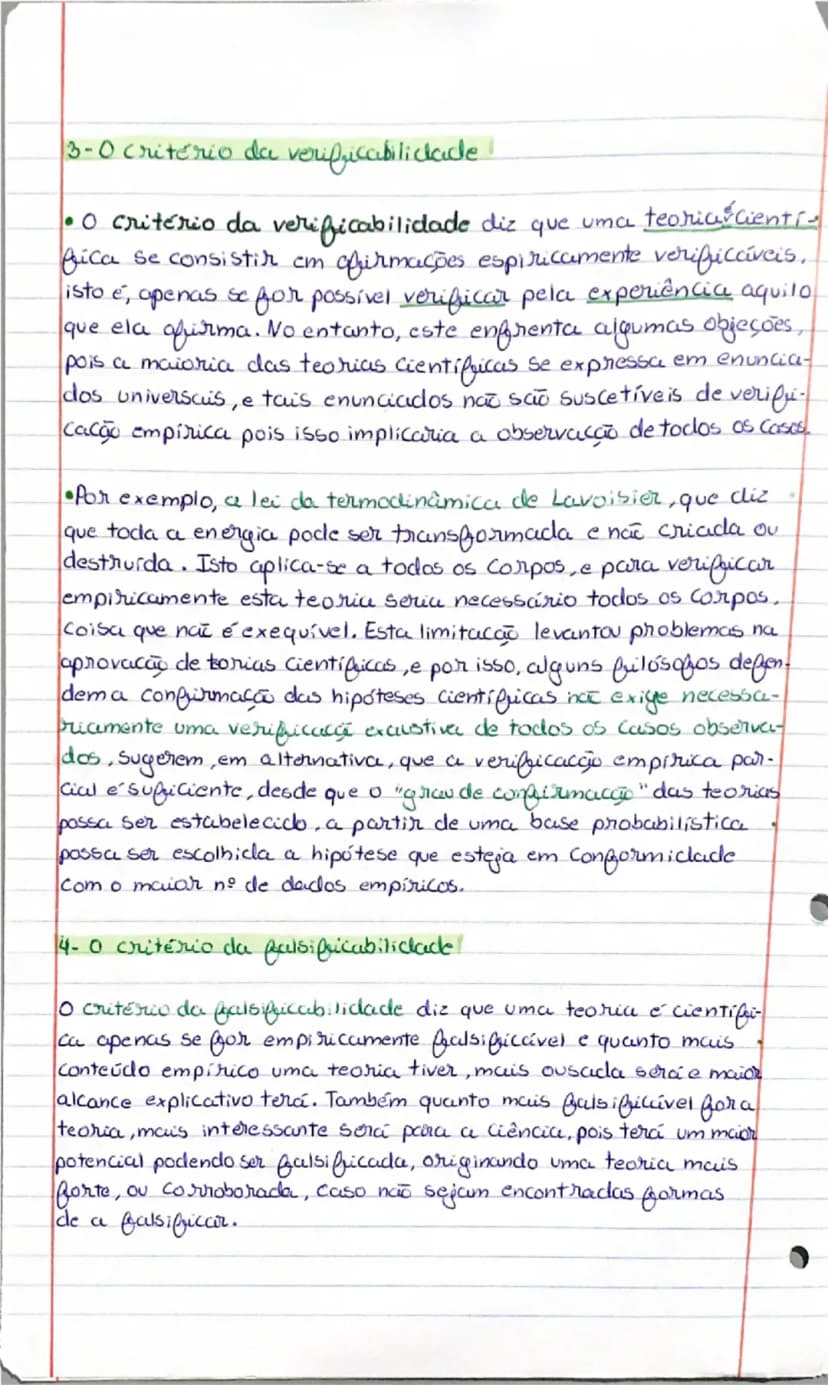 3-O critério da verificabilidade
• O critério da verificabilidade diz que uma teoria é cientí-
fica se consistir em afirmações espiricamente verificáveis,
isto é, apenas se for possível verificar pela experiência aquilo
que ela afirma. No entanto, este enfrenta algumas objeções,
pois a maioria das teorias científicas se expressa em enuncia-
dos universais, e tais enunciados não são suscetíveis de verifi-
cação empírica pois isso implicaria a observação de todos os casos.
•Por exemplo, a lei da termodinâmica de Lavoisier, que diz
que toda a energia pode ser transformada e não criada ou
destruída. Isto aplica-se a todos os corpos, e para verificar
empiricamente esta teoria seria necessário todos os corpos,
coisa que não é exequível. Esta limitação levantou problemas na
aprovação de torias científicas, e por isso, alguns filósofos defen-
dem a confirmação das hipóteses científicas não exige necessa-
riamente uma verificação exaustiva de todos os casos observa-
dos, sugerem, em alternativa, que a verificação empírica par-
cial é suficiente, desde que o "grau de confirmação" das teorias
possa ser estabelecido, a partir de uma base probabilística
possa ser escolhida a hipótese que esteja em conformidade
com o maior nº de dados empíricos.
4- O critério da falsificabilidade
O critério da falsificabilidade diz que uma teoria é científi-
ca apenas se for empiricamente falsificável e quanto mais
conteúdo empírico uma teoria tiver, mais ousada será e maior
alcance explicativo terá. Também quanto mais falsificável for a
teoria, mais interessante será para a ciência, pois terá um maior
potencial podendo ser falsificada, originando uma teoria mais
forte, ou corroborada, caso não sejam encontradas formas
de a falsificar.